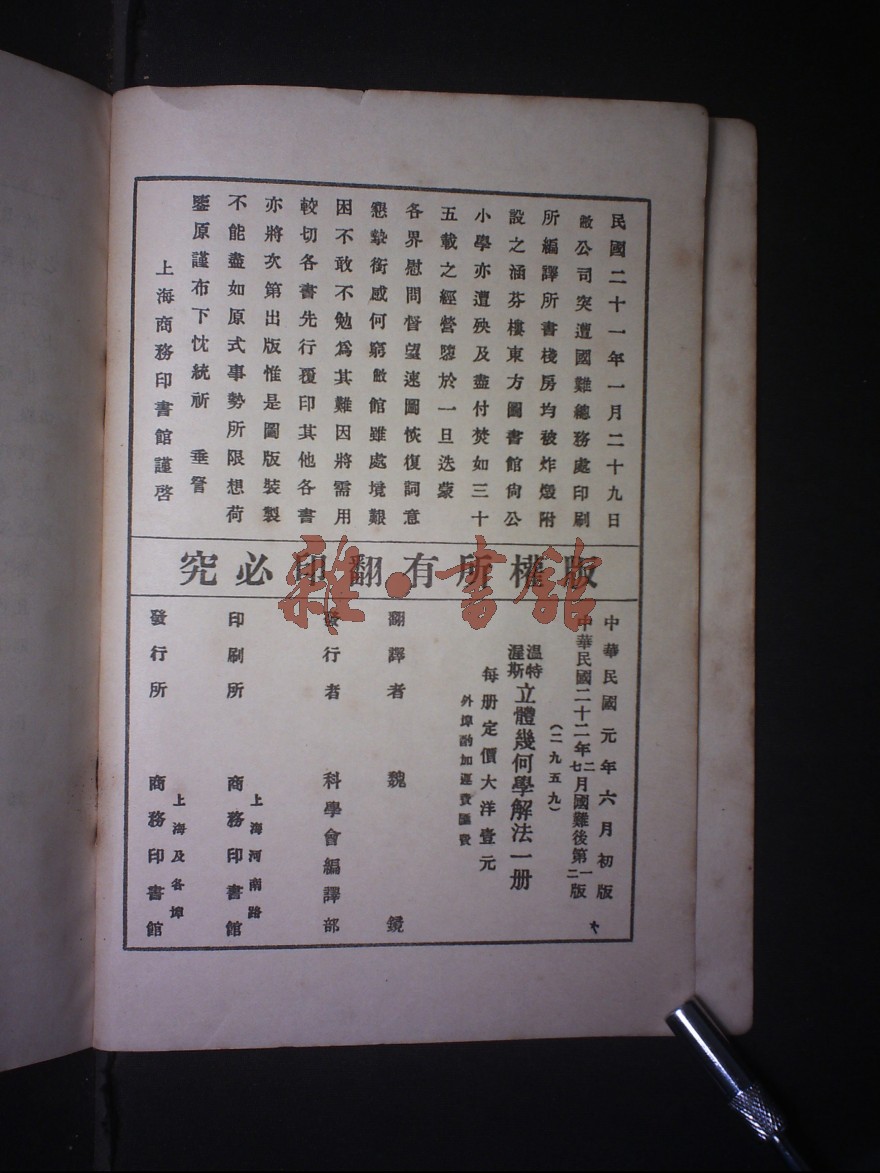 民國二十一年一月二十九日
敝公司突遭國難總務處印刷
所編譯所書棧房均被炸燬附
設之涵芬樓東方圖書館尙公
小學亦遭殃及盡付焚如三十
五載之經營隳於一旦迭蒙
各界慰問督望速圖恢復詞意
懇摯銜感何窮敝館雖處境艱
困不敢不勉爲其難因將需用
較切各書先行覆印其他各書
亦將次第出版惟是圖版裝製
不能盡如原式事勢所限想荷
鑒原謹布下忱統祈 垂詧
上海商務印書館謹啓
版權所有翻印必究
中華民國元年六月初版
中華民國二十二年二七月國難後第一二版
(二九五九)
溫特渥斯立體幾何學解法一册
每册定價大洋壹元
外埠酌加運費匯費
翻譯者 魏鏡
發行者 科學會編譯部
印刷所 上海河南路 商務印書館
發行所 上海及各埠 商務印書館
雜·書館